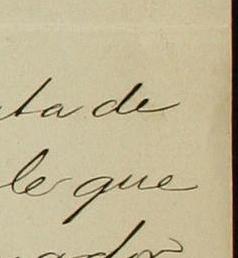 ta de
le que
ador